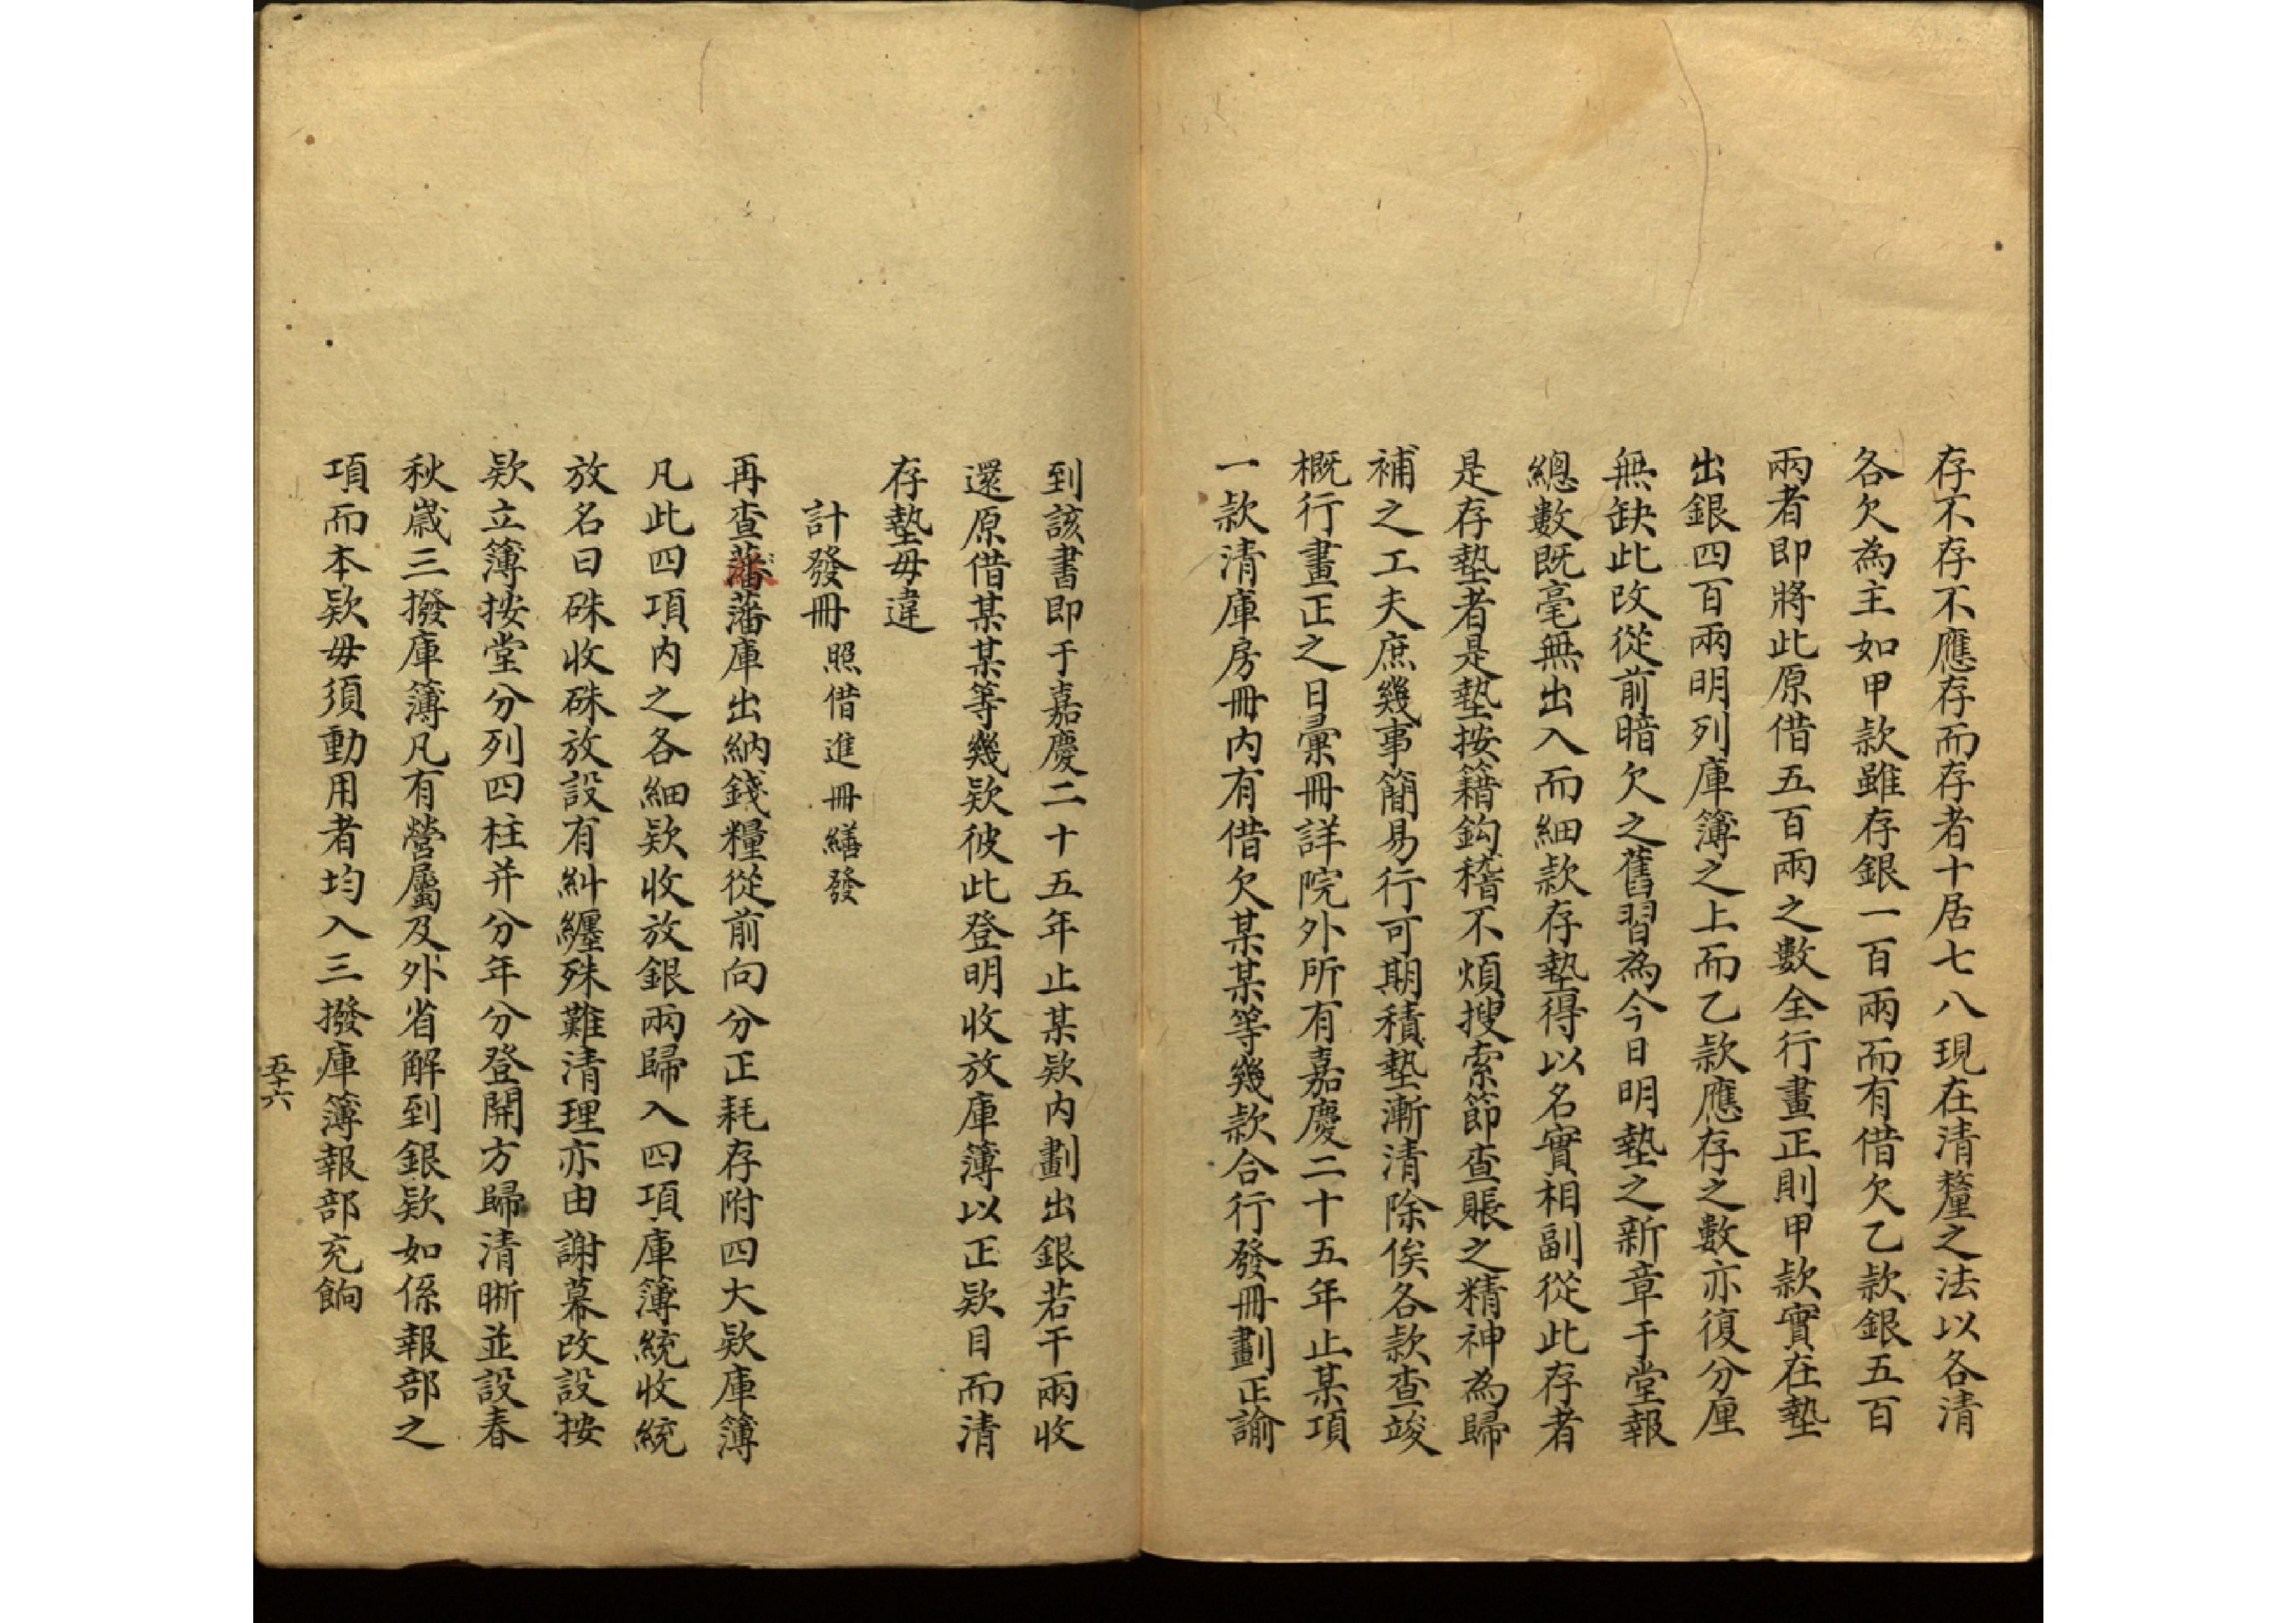 存不存不應存而存者十居七八現在清釐之法以各清
各欠為主如甲款雖存銀一百兩而有借欠乙款銀五百
兩者即將此原借五百兩之數全行畫正則甲款實在墊
出銀四百兩明列庫簿之上而乙款應存之數亦復分厘
無缺此改從前暗欠之舊習為今日明墊之新章于堂報
總數既毫無出入而細款存墊得以名實相副從此存者
是存墊者是墊按籍鈎稽不煩搜索節查賬之精神為歸
補之工夫庶幾事簡易行可期積墊漸清除俟各款查竣
概行畫正之日彙冊詳院外所有嘉慶二十五年止某項
一款清庫房冊內有借欠某某等幾款合行發冊劃正諭
到該書即于嘉慶二十五年止某欵內劃出銀若干兩收
還原借某某等幾欵彼此登明收放庫簿以正欵目而清
存墊毋違
計發冊照借進冊繕發
再查藩藩庫出納錢糧從前向分正耗存附四大欵庫簿
凡此四項內之各細欵收放銀兩歸入四項庫簿統收統
放名曰硃收硃放設有糾纏殊難清理亦由謝幕改設按
欵立簿按堂分列四柱并分年分登開方歸清晰並設春
秋嵗三撥庫簿凡有營屬及外省解到銀欵如係報部之
項而本欵毋須動用者均入三撥庫簿報部充餉
五十六